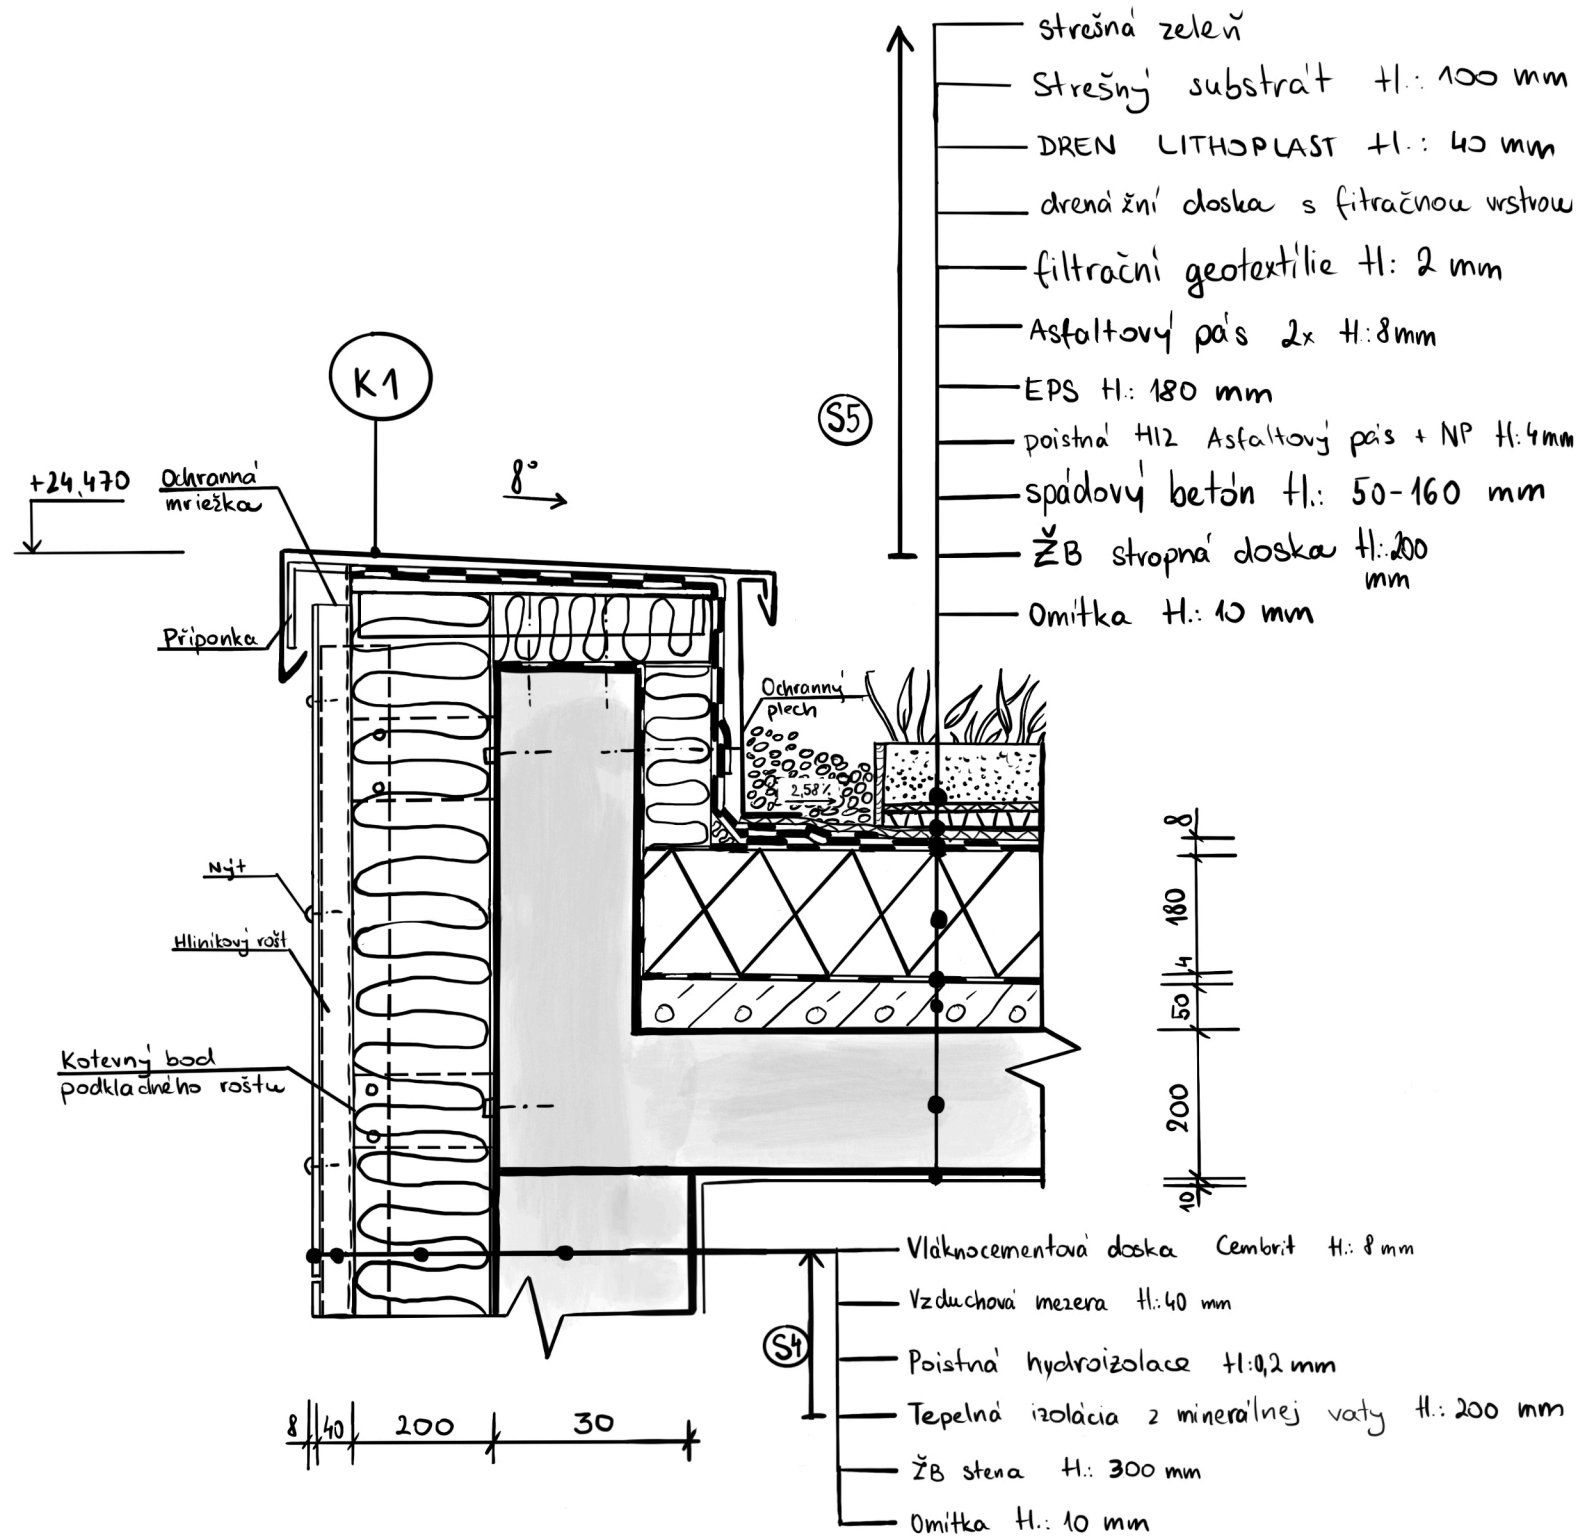 strešná zeleň
Strešný substrát tl.: 100 mm
DREN LITHOPLAST tl.: 40 mm
drenážní doska s fitračnou vrstvou
filtrační geotextílie tl: 2 mm
Asfaltový pás 2x tl.: 8mm
EPS tl.: 180 mm
poistná HIZ Asfaltový pás + NP tl: 4mm
spádový betón tl.: 50-160 mm
ŽB stropná doska tl.: 200
mm
Omítka tl.: 10 mm
S5
K1
8°
+24,470
Ochranná
mriežka
Příponka
Ochranný
plech
2,58%
Nýt
Hliníkový rošt
Kotevný bod
podkladného roštu
8
180
4
50
200
10
Vláknocementová doska Cembrit tl.: 8 mm
Vzduchová mezera tl.: 40 mm
Poistná hydroizolace tl: 0,2 mm
Tepelná izolácia z minerálnej vaty tl.: 200 mm
ŽB stena tl.: 300 mm
Omítka tl.: 10 mm
S4
8 40 200 30